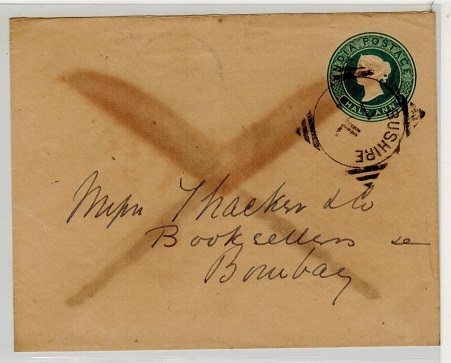 INDIA POSTAGE
HALF ANNA
BUSHIRE
Messrs Thacker & Co
Booksellers &c
Bombay